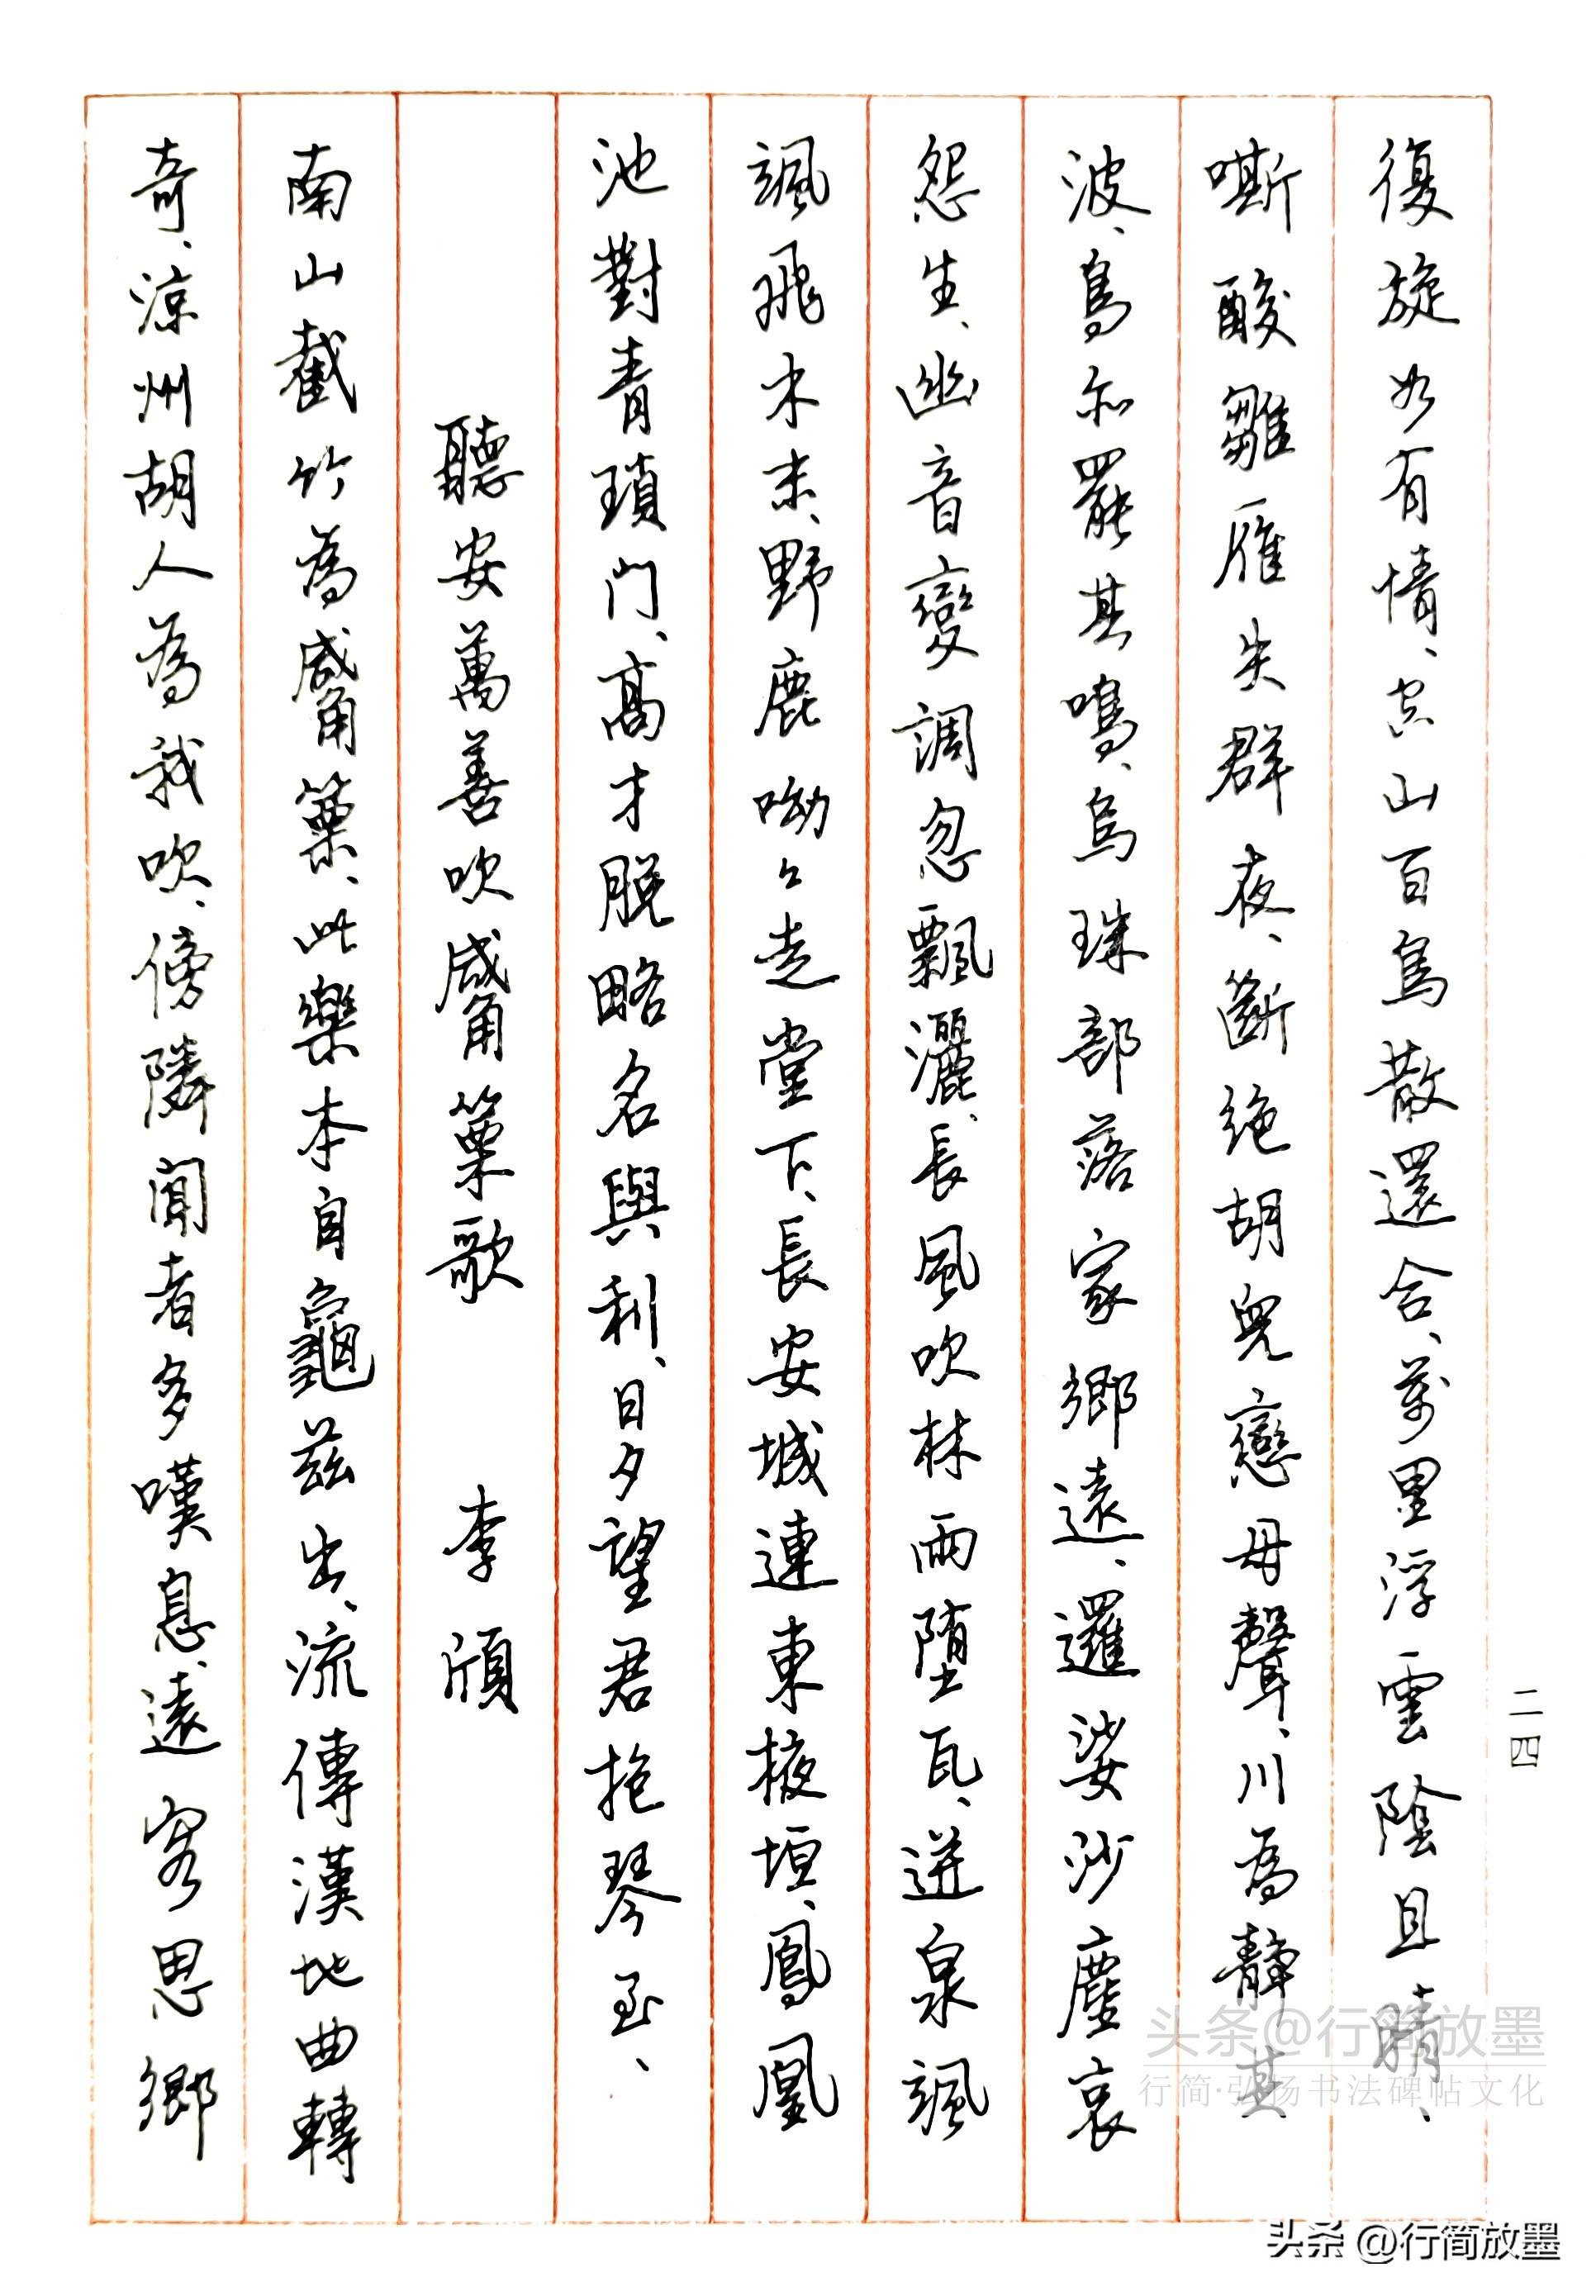 復旋如有情、空山百鳥散還合、萬里浮雲陰且晴、
嘶酸雛雁失群夜、斷絕胡兒戀母聲、川為靜其
波、鳥亦罷其鳴、烏珠部落家鄉遠、邏娑沙塵哀
怨生、幽音變調忽飄灑、長風吹林雨墮瓦、迸泉颯
颯飛木末、野鹿呦々走堂下、長安城連東掖垣、鳳凰
池對青瑣門、高才脫略名與利、日夕望君抱琴至、
聽安萬善吹觱篥歌 李頎
南山截竹為觱篥、此樂本自龜茲出、流傳漢地曲轉
奇、涼州胡人為我吹、傍隣聞者多嘆息、遠客思鄉
二四
头条@行简放墨
行简·弘扬书法碑帖文化
头条 @行简放墨